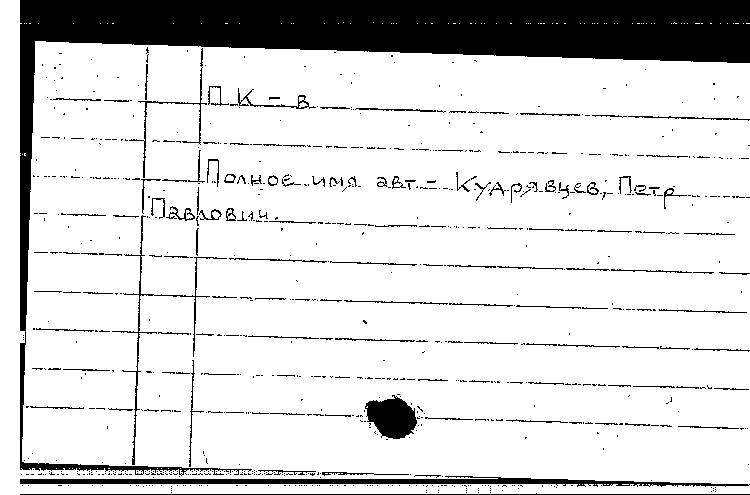 П К - в
Полное имя авт. - Кудрявцев, Петр
Павлович.